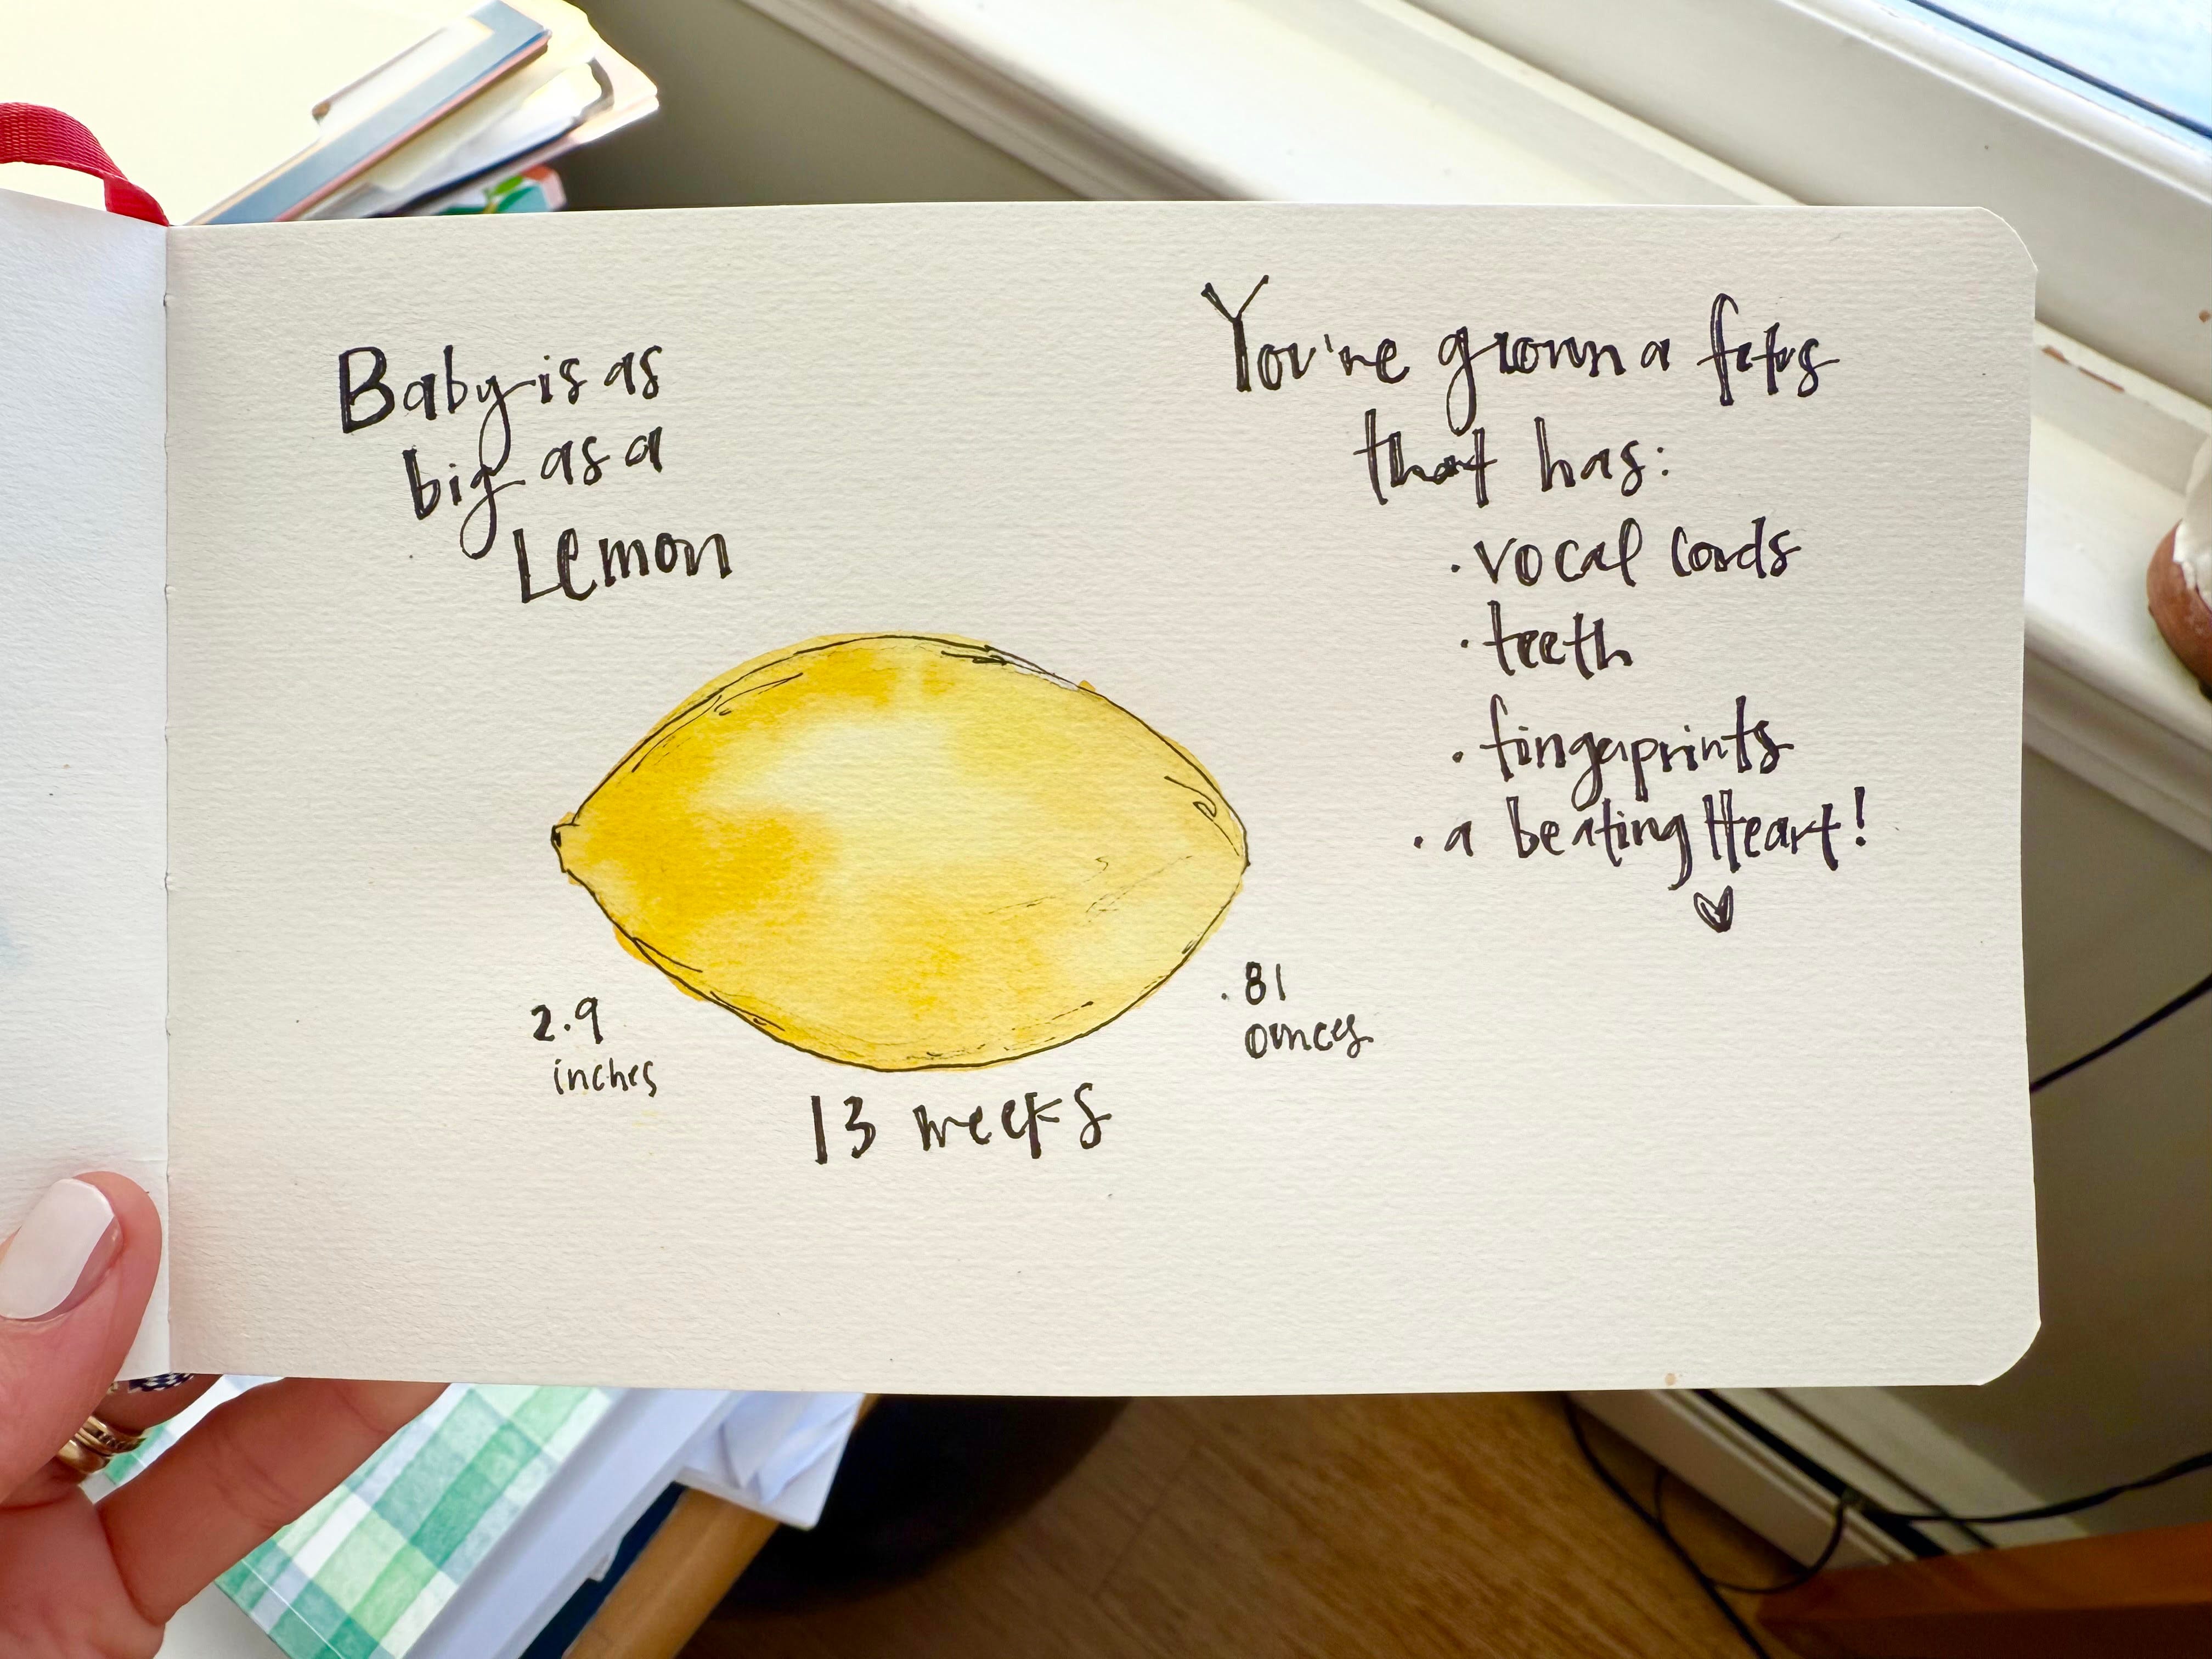 Baby is as
big as a
Lemon
You've grown a fetus
that has:
· vocal cords
· teeth
· fingerprints
· a beating Heart!
2.9
inches
.81
ounces
13 weeks